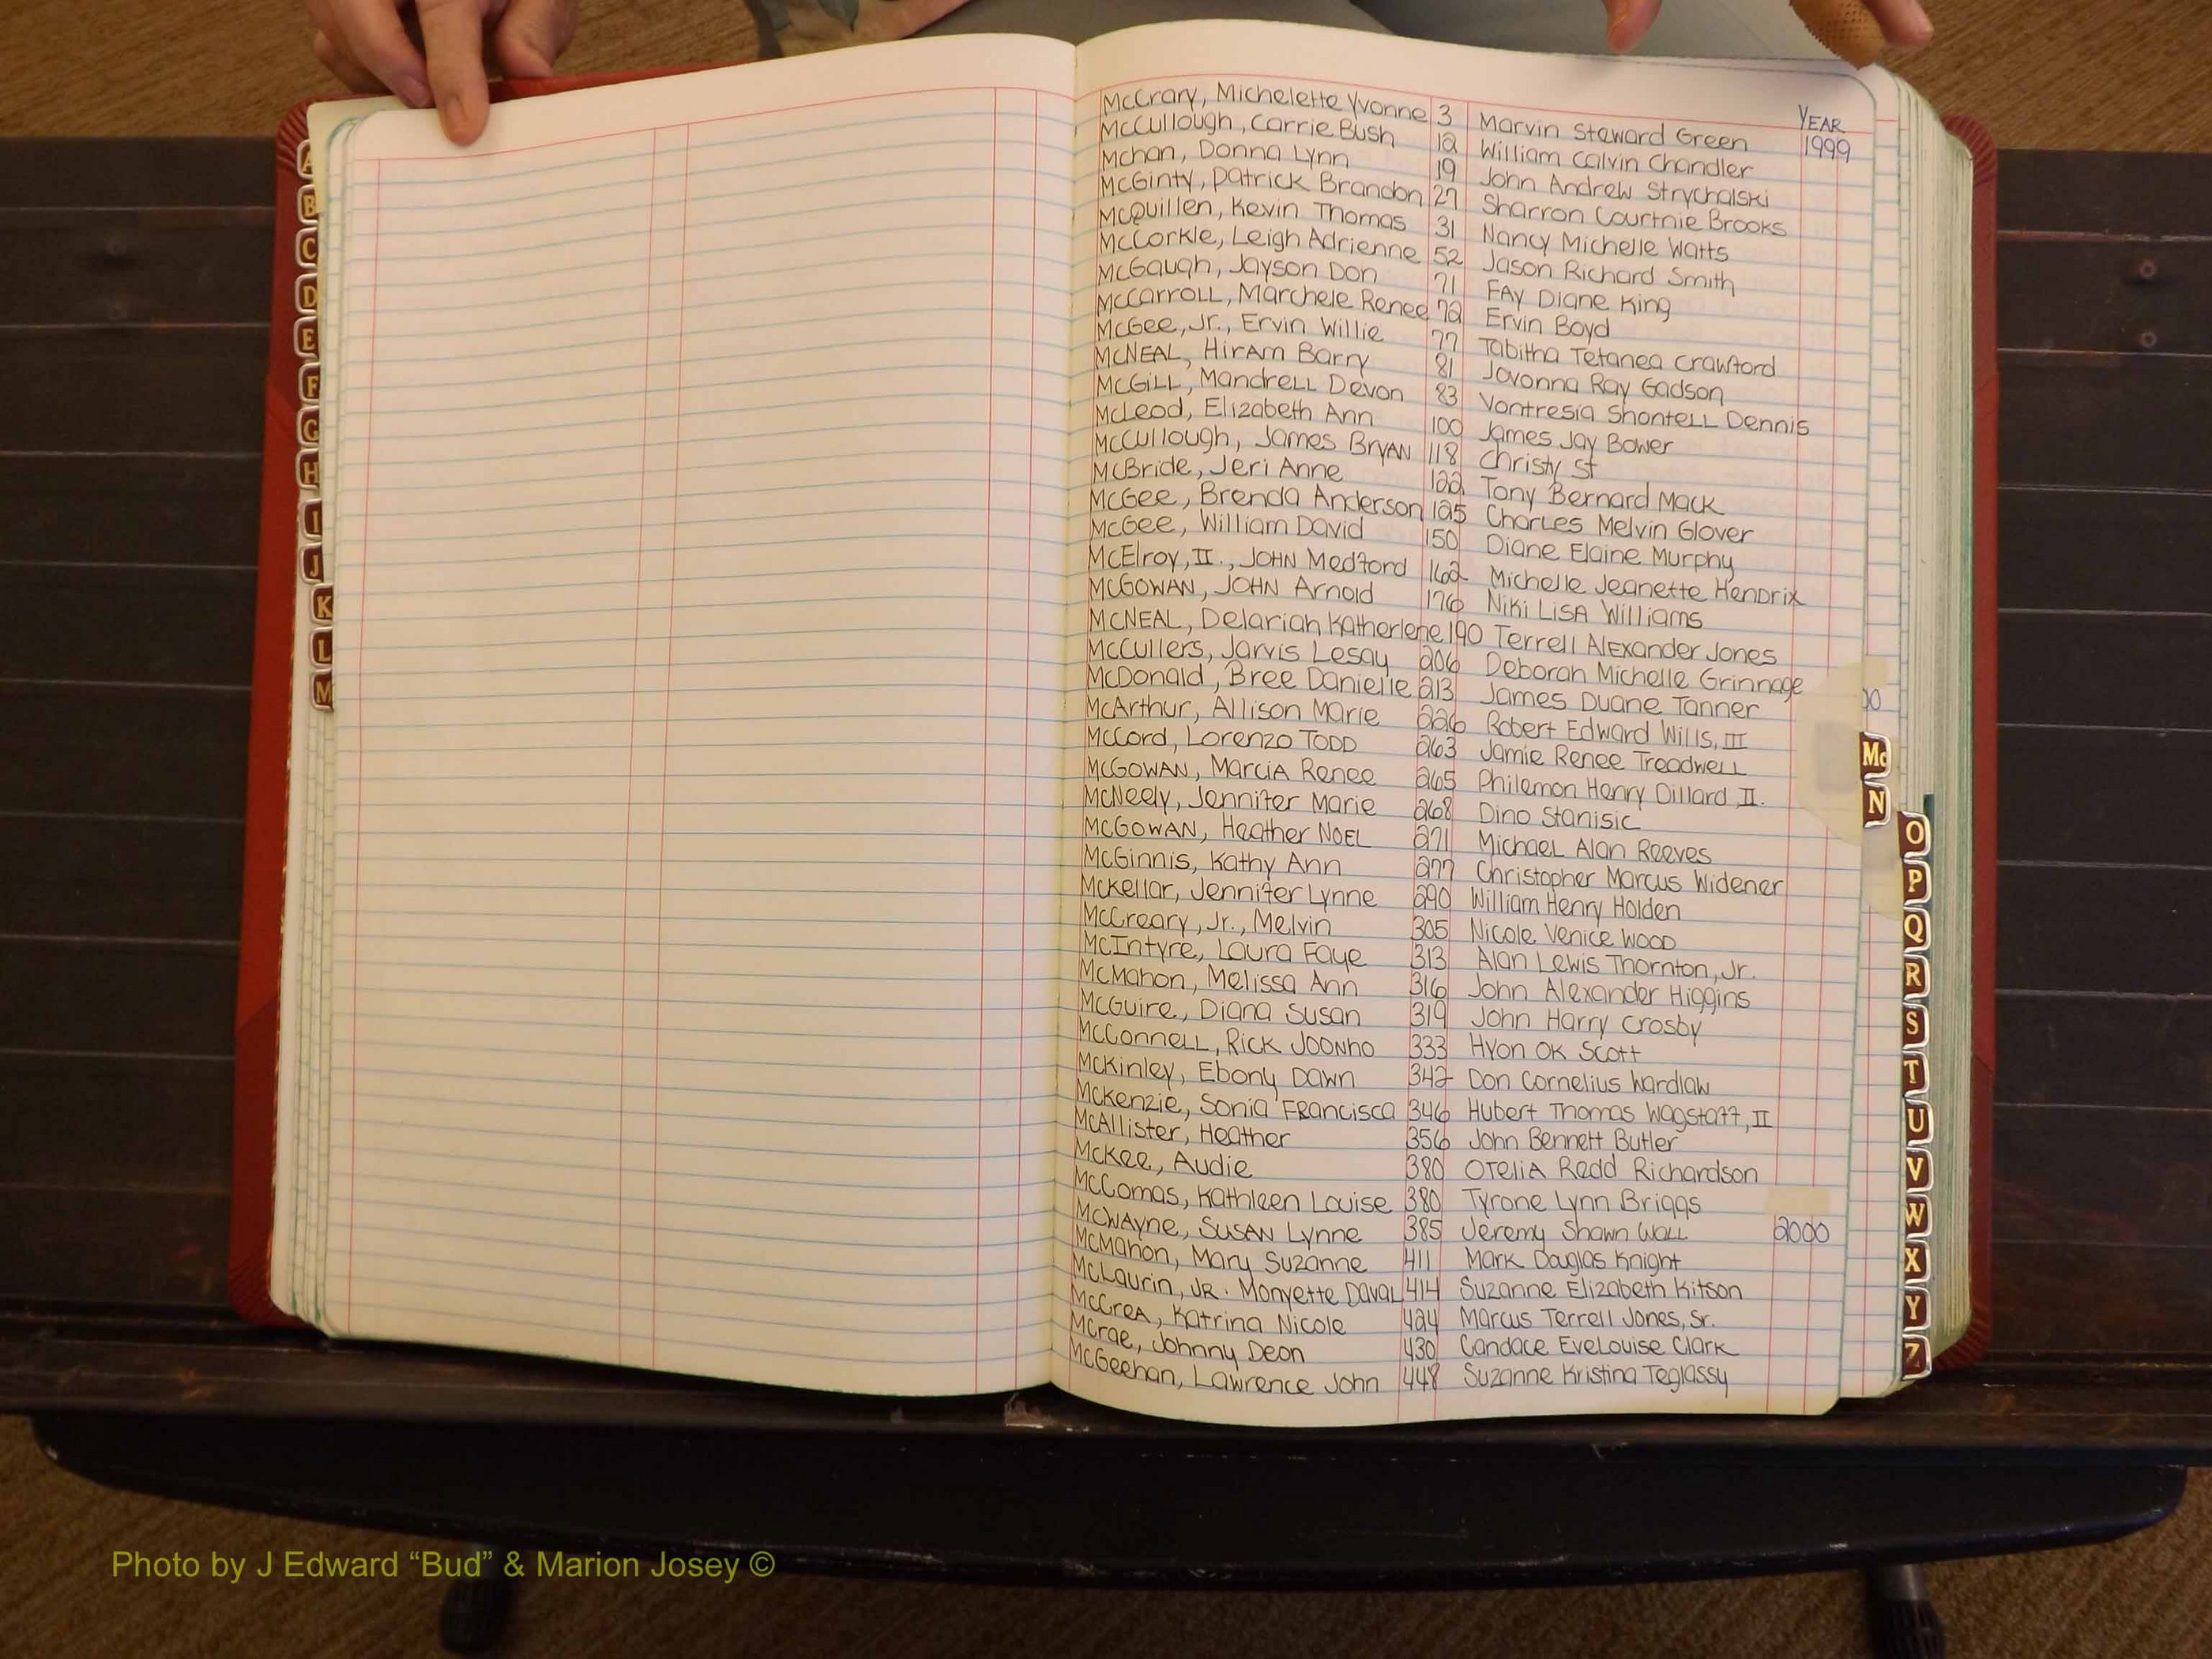 YEAR
McCrary, Michelette Yvonne 3 Marvin Steward Green 1999
McCullough, Carrie Bush 12 William Calvin Chandler
Mchan, Donna Lynn 19 John Andrew Strychalski
McGinty, Patrick Brandon 27 Sharron Courtnie Brooks
McQuillen, Kevin Thomas 31 Nancy Michelle Watts
McCorkle, Leigh Adrienne 52 Jason Richard Smith
McGaugh, Jayson Don 71 Fay Diane King
McCarroll, Marchele Renee 72 Ervin Boyd
McGee, Jr., Ervin Willie 77 Tabitha Tetanea Crawford
McNEAL, Hiram Barry 81 Jovonna Ray Gadson
McGill, Mandrell Devon 83 Vontresia Shontell Dennis
McLeod, Elizabeth Ann 100 James Jay Bower
McCullough, James Bryan 118 Christy St
McBride, Jeri Anne 122 Tony Bernard Mack
McGee, Brenda Anderson 125 Charles Melvin Glover
McGee, William David 150 Diane Elaine Murphy
McElroy, II., John Medford 162 Michelle Jeanette Hendrix
McGowan, John Arnold 176 Niki Lisa Williams
McNEAL, Delariah Katherlene 190 Terrell Alexander Jones
McCullers, Jarvis Lesay 206 Deborah Michelle Grinnage
McDonald, Bree Danielle 213 James Duane Tanner
McArthur, Allison Marie 226 Robert Edward Wills, III
McCord, Lorenzo Todd 263 Jamie Renee Treadwell
McGowan, Marcia Renee 265 Philemon Henry Dillard, II.
McNeely, Jennifer Marie 268 Dino Stanisic
McGowan, Heather Noel 271 Michael Alan Reeves
McGinnis, Kathy Ann 277 Christopher Marcus Widener
McKellar, Jennifer Lynne 290 William Henry Holden
McCreary, Jr., Melvin 305 Nicole Venice Wood
McIntyre, Laura Faye 313 Alan Lewis Thornton, Jr.
McMahon, Melissa Ann 316 John Alexander Higgins
McGuire, Diana Susan 319 John Harry Crosby
McConnell, Rick Joonho 333 Hyon Ok Scott
McKinley, Ebony Dawn 342 Don Cornelius Wardlaw
McKenzie, Sonia Francisca 346 Hubert Thomas Wagstaff, II
McAllister, Heather 356 John Bennett Butler
McKee, Audie 380 Otelia Redd Richardson
McComas, Kathleen Louise 380 Tyrone Lynn Briggs
McWayne, Susan Lynne 385 Jeremy Shawn Wall 2000
McMahon, Mary Suzanne 411 Mark Douglas Knight
McLaurin, Jr. Monyette Daval 414 Suzanne Elizabeth Kitson
McCrea, Katrina Nicole 424 Marcus Terrell Jones, Sr.
McRae, Johnny Deon 430 Candace EveLouise Clark
McGeehan, Lawrence John 448 Suzanne Kristina Teglassy
A
B
C
D
E
F
G
H
I
J
K
L
M
Mc
N
O
P
Q
R
S
T
U
V
W
X
Y
Z
Photo by J Edward “Bud” & Marion Josey ©